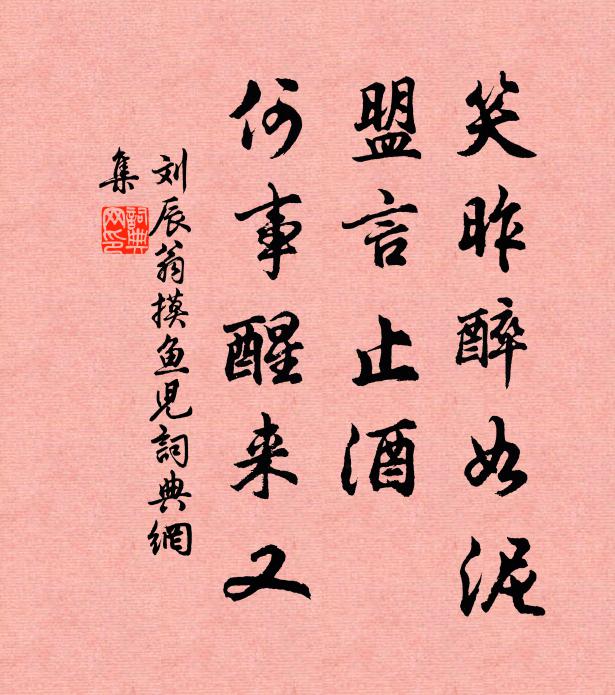 笑昨醉如泥
盟言止酒
何事醒来又
刘辰翁摸鱼儿詞典網
集
詞典
网印